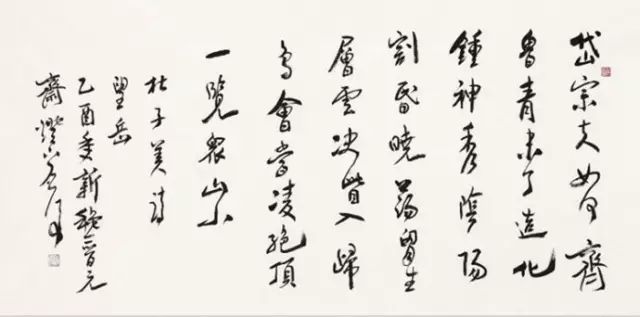 岱宗夫如何齊
魯青未了造化
鍾神秀陰陽
割昏曉蕩胷生
層雲決眥入歸
鳥會當凌絕頂
一覽衆山小
杜子美詩
望岳
乙酉季新穐晉元
齋燈下